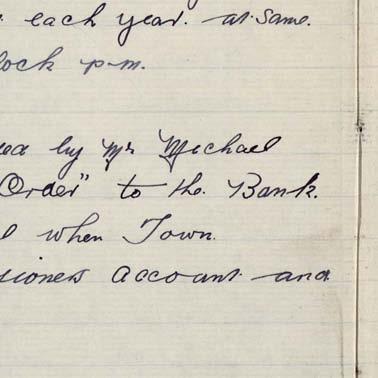 each year. at same.
lock p-m.
by Mr Michael
Order" to the Bank.
when Town.
sioners account and